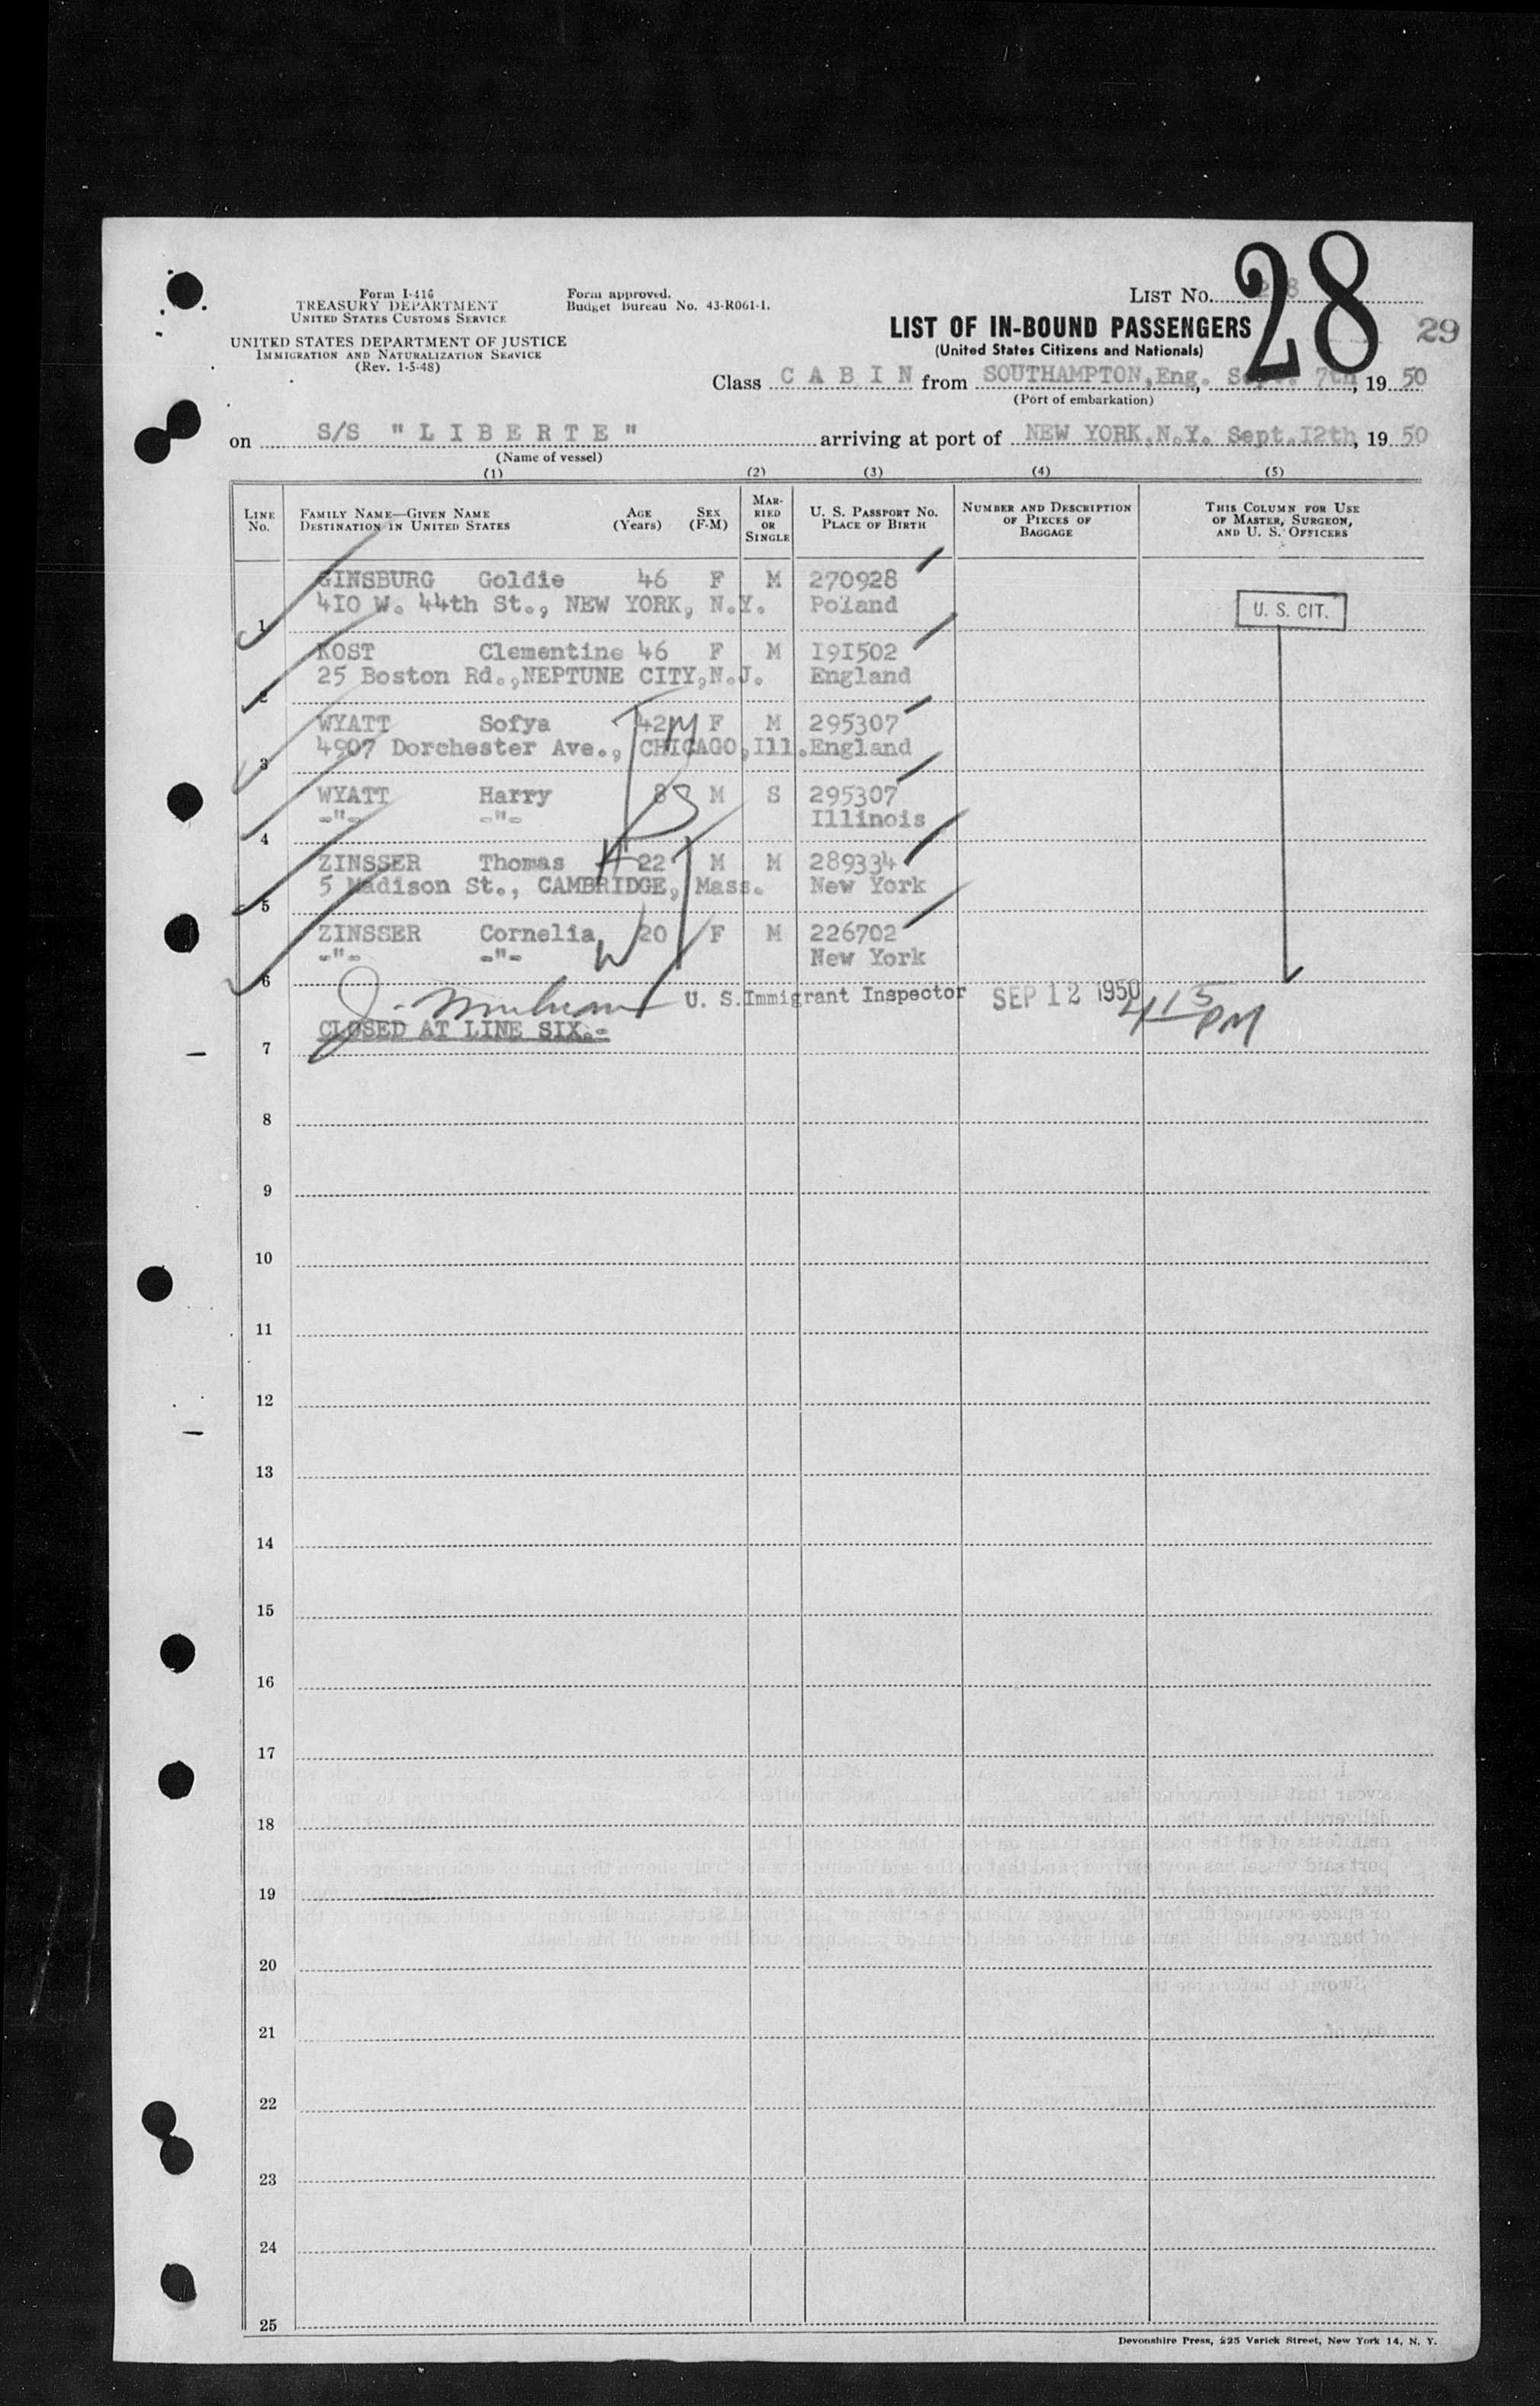 Form I-416
TREASURY DEPARTMENT
UNITED STATES CUSTOMS SERVICE
UNITED STATES DEPARTMENT OF JUSTICE
IMMIGRATION AND NATURALIZATION SERVICE
(Rev. 1-5-48)
Form approved.
Budget Bureau No. 43-R061-1.
LIST NO.
28
29
LIST OF IN-BOUND PASSENGERS
(United States Citizens and Nationals)
Class C A B I N from SOUTHAMPTON,Eng. Sept. 7th, 19 50
(Port of embarkation)
on S/S "L I B E R T E" arriving at port of NEW YORK,N.Y. Sept.I2th, 19 50
(Name of vessel)
(1) (2) (3) (4) (5)
LINE No. FAMILY NAME—GIVEN NAME DESTINATION IN UNITED STATES AGE (Years) SEX (F-M) MARRIED OR SINGLE U. S. PASSPORT NO. PLACE OF BIRTH NUMBER AND DESCRIPTION OF PIECES OF BAGGAGE THIS COLUMN FOR USE OF MASTER, SURGEON, AND U. S. OFFICERS
GINSBURG Goldie 46 F M 270928
1 4I0 W. 44th St., NEW YORK, N.Y. Poland
U. S. CIT.
KOST Clementine 46 F M I9I502
2 25 Boston Rd.,NEPTUNE CITY,N.J. England
WYATT Sofya 42 M F M 295307
3 4907 Dorchester Ave., CHICAGO,Ill. England
WYATT Harry 8 S M S 295307
4 -"- -"- Illinois
ZINSSER Thomas H 22 M M 289334
5 5 Madison St., CAMBRIDGE, Mass. New York
ZINSSER Cornelia W 20 F M 226702
6 -"- -"- New York
J. U. S. Immigrant Inspector SEP 12 1950 4 15 PM
CLOSED AT LINE SIX.-
7
8
9
10
11
12
13
14
15
16
17
18
19
20
21
22
23
24
25
Devonshire Press, 225 Varick Street, New York 14, N. Y.